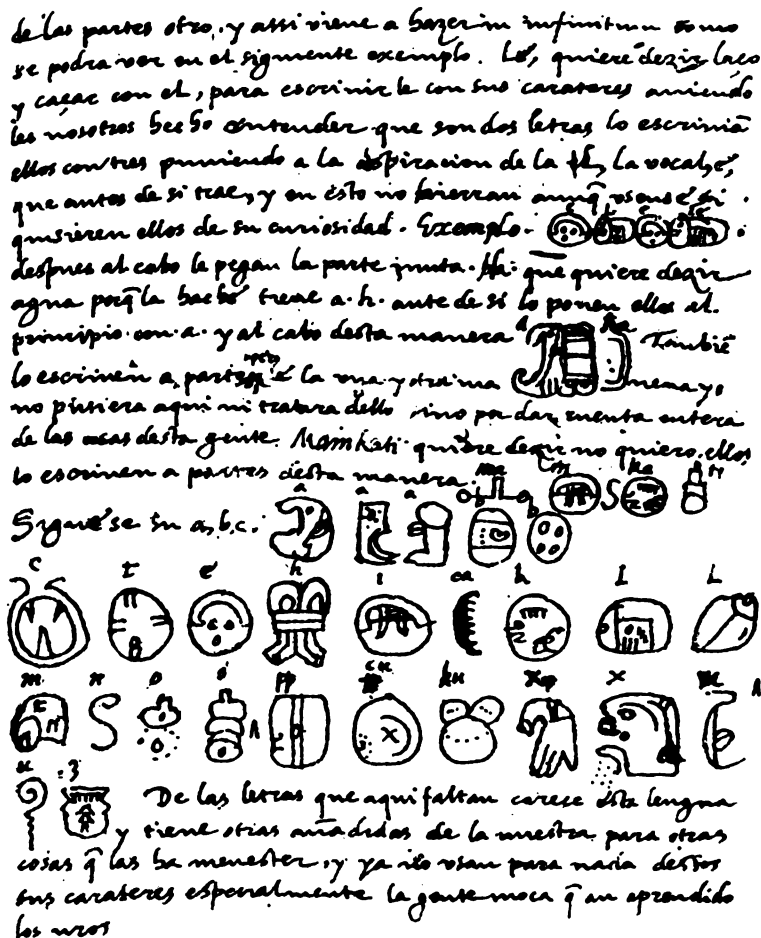 de las partes otro, y assi viene a hazer in infinitum como
se podra ver en el siguiente exemplo. Lé, quiere dezir laço
y caçar con el, para escrivirle con sus carateres aviendo
les nosotros hecho entender que son dos letras lo escrivian
ellos con tres puniendo a la aspiracion de la l, la vocal, é,
que antes de si trae, y en esto no hierran aunq̃ usense si
quisieren ellos de su curiosidad. Exemplo.
despues al cabo le pegan la parte junta. Ha. que quiere dezir
agua porq̃ la haché tiene a. h. ante de si lo ponen ellos al
principio con a. y al cabo desta manera
a ha
Tambiē
lo escriven a partes la una y otra
no pusiera aqui ni tratara dello sino por dar cuenta entera
de las cosas desta gente. Mainkati quiere dezir no quiero, ellos
lo escriven a partes desta manera.
ma i n ka ti
Siguese su a, b, c.
a a a b b
c t é h i ca k l l
m n o o pp cu ku x x u
u z
De las letras que aqui faltan carece esta lengua
y tiene otras añadidas de la nuestra para otras
cosas q̃ las ha menester, y ya no usan para nada destos
sus carateres especialmente la gente moça q̃ an aprendido
los nros